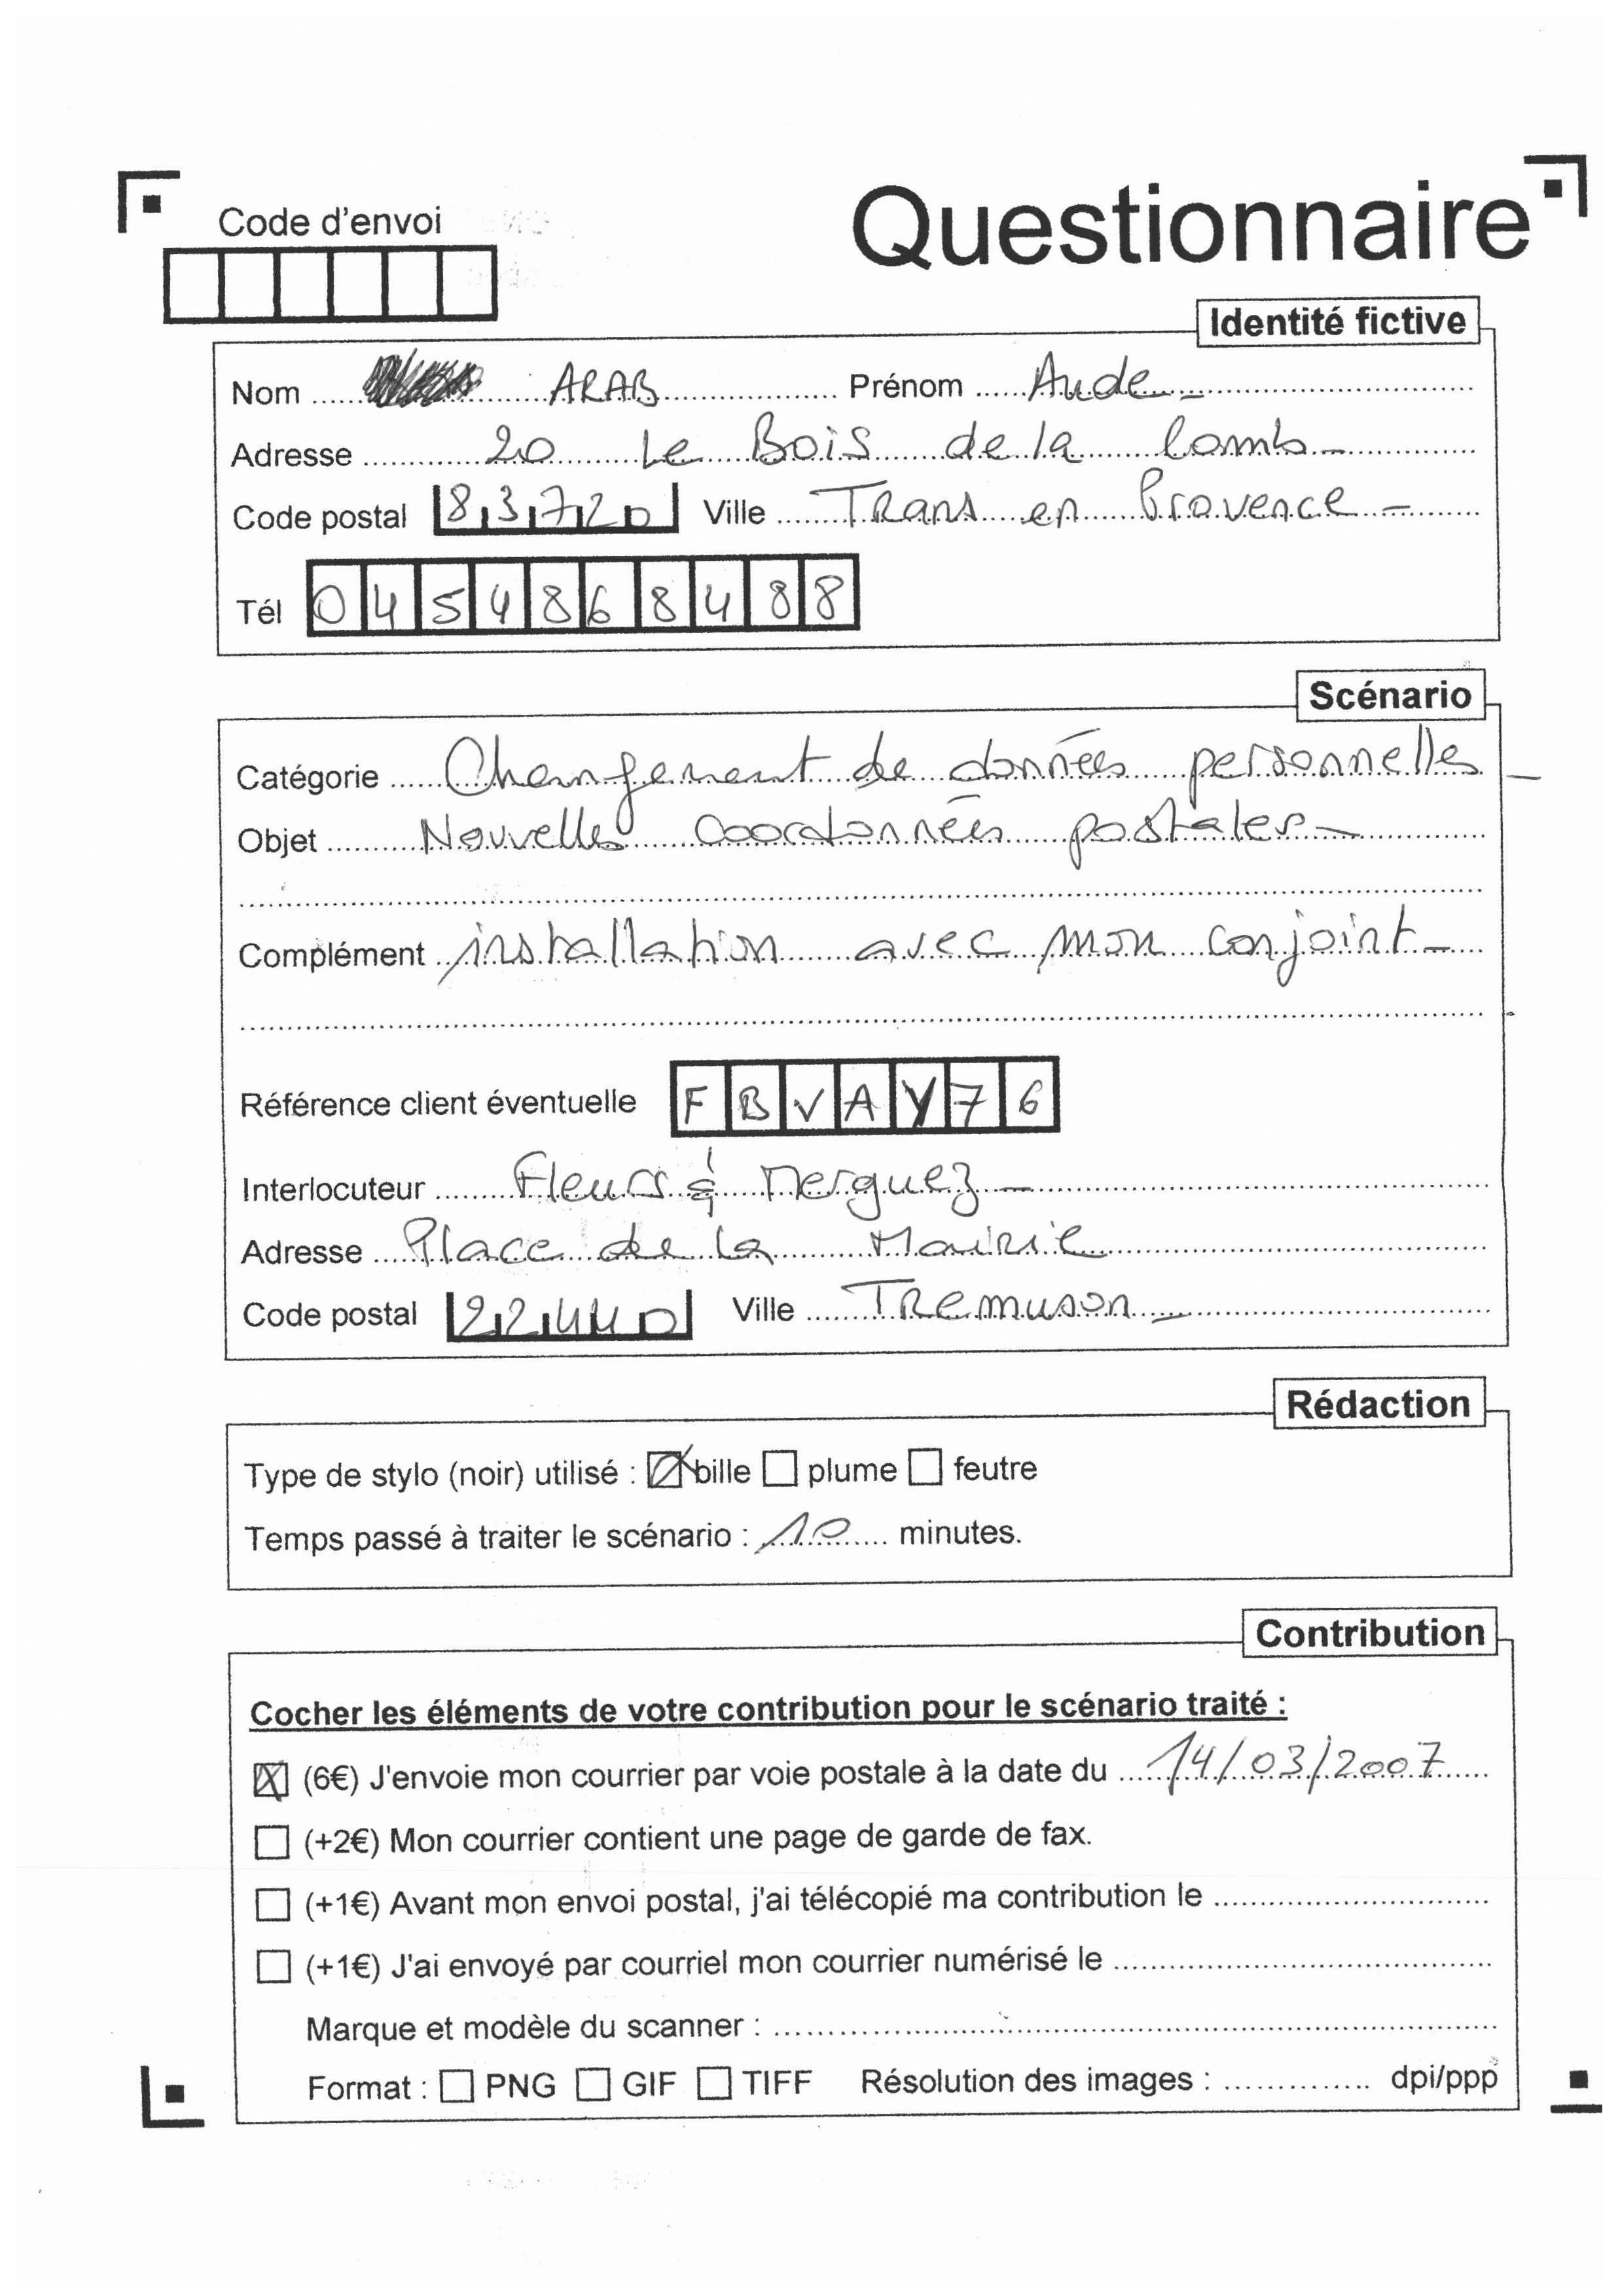 Questionnaire
Code d'envoi
Identité fictive
Nom ARAB Prénom Aude
Adresse 20 Le Bois de la Comb
Code postal 83720 Ville Trans en Provence
Tél 0454868488
Scénario
Catégorie Changement de données personnelles
Objet Nouvelles coordonnées postales
Complément installation avec mon conjoint
Référence client éventuelle FBVAY76
Interlocuteur Fleurs & Merguez
Adresse Place de la Mairie
Code postal 22440 Ville Tremuson
Rédaction
Type de stylo (noir) utilisé : bille plume feutre
Temps passé à traiter le scénario : 10 minutes.
Contribution
Cocher les éléments de votre contribution pour le scénario traité :
(6€) J'envoie mon courrier par voie postale à la date du 14/03/2007
(+2€) Mon courrier contient une page de garde de fax.
(+1€) Avant mon envoi postal, j'ai télécopié ma contribution le
(+1€) J'ai envoyé par courriel mon courrier numérisé le
Marque et modèle du scanner :
Format : PNG GIF TIFF Résolution des images : dpi/ppp